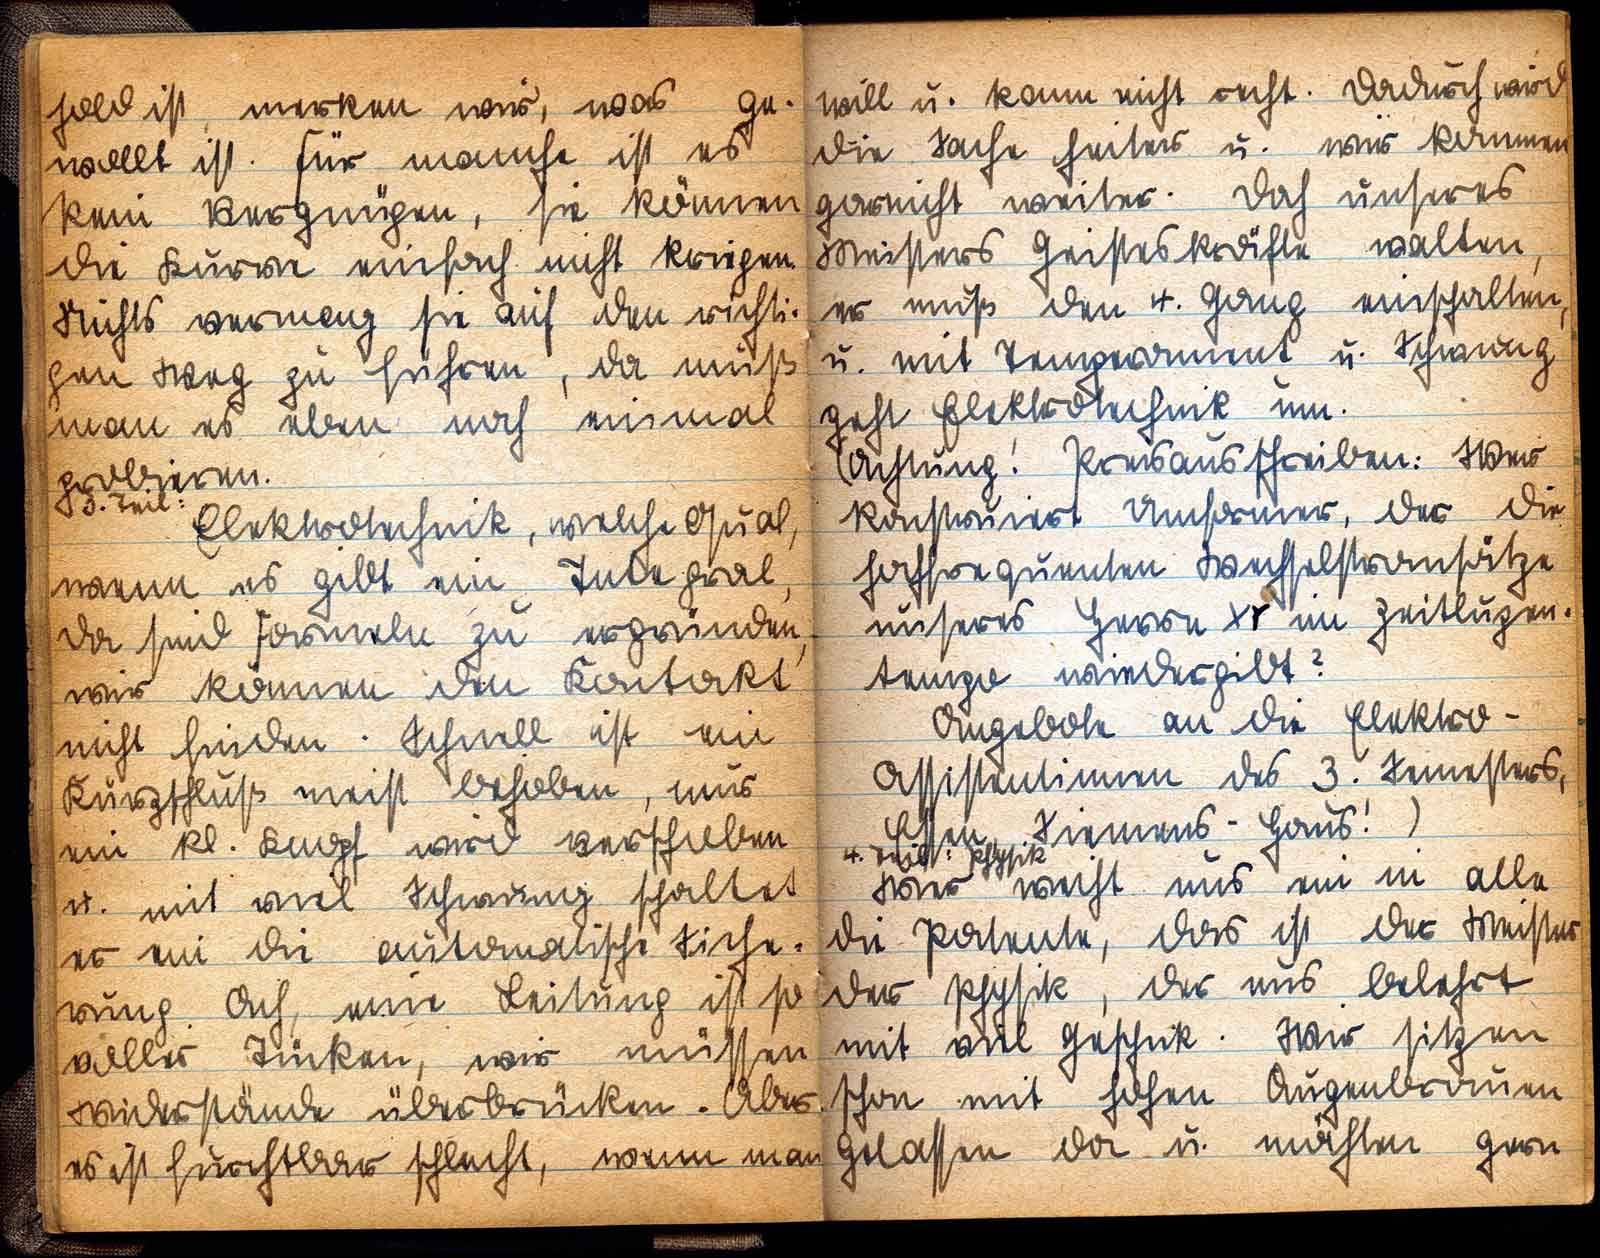 hold ist, merken wir, was ge-
wollt ist. Für manche ist es
kein Vergnügen, sie können
die Kurve einfach nicht kriegen.
Nichts vermag sie auf den richti-
gen Weg zu führen, da muß
man es eben noch einmal
probieren.
3. Teil:
Elektrotechnik, welche Qual,
wenn es gibt ein Integral,
da sind Formeln zu ergründen,
wir können den Kontakt
nicht finden. Schnell ist ein
Kurzschluß meist behoben, nur
ein kl. Knopf wird verschoben
u. mit viel Schwung schaltet
er ein die automatische Siche-
rung. Ach, eine Leitung ist so
voller Tücken, wir müssen
Widerstände überbrücken. Aber
es ist furchtbar schlecht, wenn man
will u. kann nicht recht. Dadurch wird
die Sache heiter u. wir kommen
garnicht weiter. Doch unseres
Meisters Geisteskräfte walten,
er muß den 4. Gang einschalten,
u. mit Temperament u. Schwung
geht Elektrotechnik um.
(Achtung! Preisausschreiben: Wer
konstruiert Umformer, der die
hochfrequenten Wechselstromsätze
unseres Herrn Xr im Zeitlupen-
tempo wiedergibt?
Angebote an die Elektro-
Assistentinnen des 3. Semesters,
Essen, Siemens-Haus!)
4. Teil: Physik
Wer weiht uns ein in alle
die Patente, das ist der Meister
der Physik, der uns belehrt
mit viel Geschick. Wir sitzen
schon mit hohen Augenbrauen
gelassen da u. möchten gern